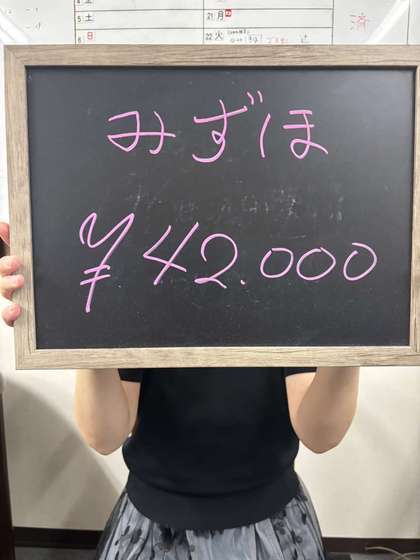 5 土
6 日
21 月
22 火
済
みずほ
¥42.000